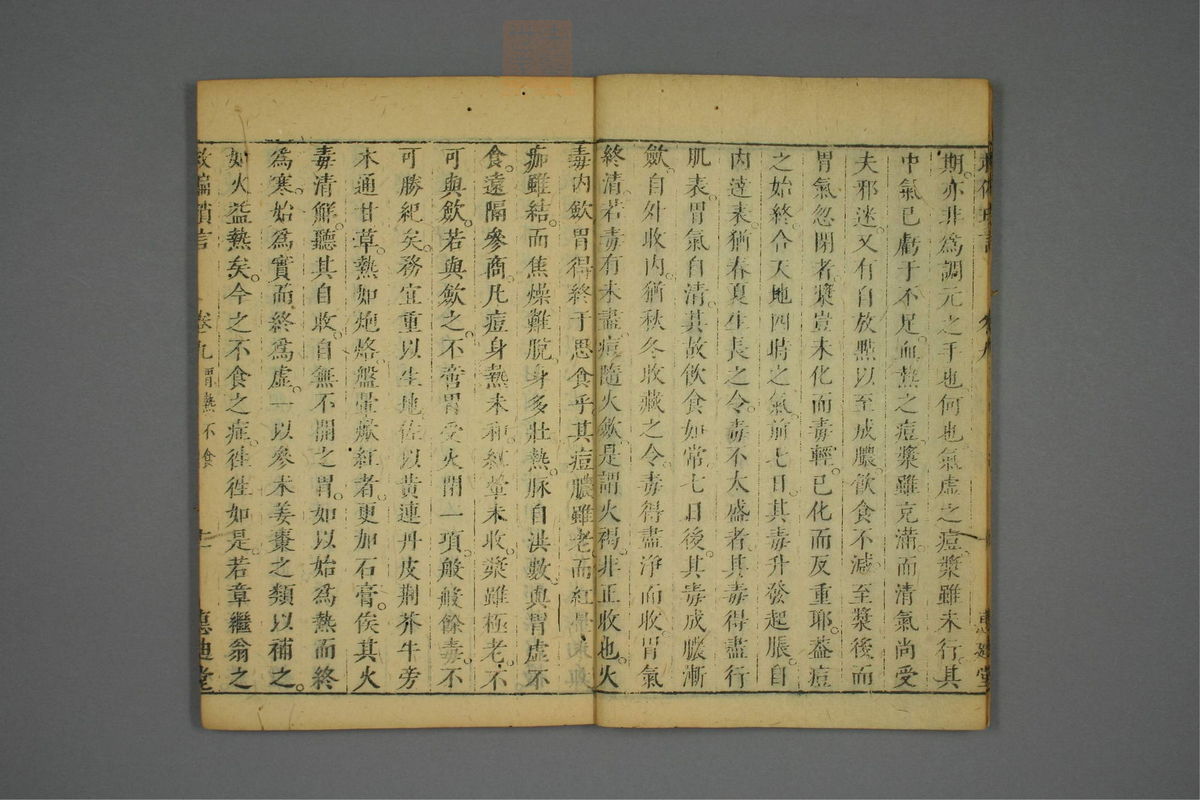 期亦非為調元之手也何也氣虛之痘漿雖未行其
中氣已虧于不足血熱之痘漿雖克滿而清氣尚受
夫邪迷又有自放點以至成膿飲食不減至漿後而
胃氣忽閉者漿豈未化而毒輕已化而反重耶蓋痘
之始終合天地四時之氣前七日其毒升發起脹自
內達表猶春夏生長之令毒不太盛者其毒得盡行
肌表胃氣自清其故飲食如常七日後其毒成膿漸
斂自外收內猶秋冬收藏之令毒得盡淨而收胃氣
終清若毒有未盡痘隨火斂是謂火褐非正收也火
毒內斂胃得終于思食乎其痘膿雖老而紅暈
痂雖結而焦燥難脫身多壯熱脉自洪數與胃虛不
食遠隔參商凡痘身熱未和紅暈未收漿雖極老不
可與飲若與飲之不啻胃受火閉一項般般餘毒不
可勝紀矣務宜重以生地佐以黃連丹皮荆芥牛旁
木通甘草熱如炮烙盤暈㷀紅者更加石膏俟其火
毒清解聽其自收自無不開之胃如以始為熱而終
為寒始為實而終為虛一以參朮姜棗之類以補之
如火益熱矣今之不食之症徃徃如是若章繼翁之
救偏瑣言
卷九胃熱不食
惠迪堂